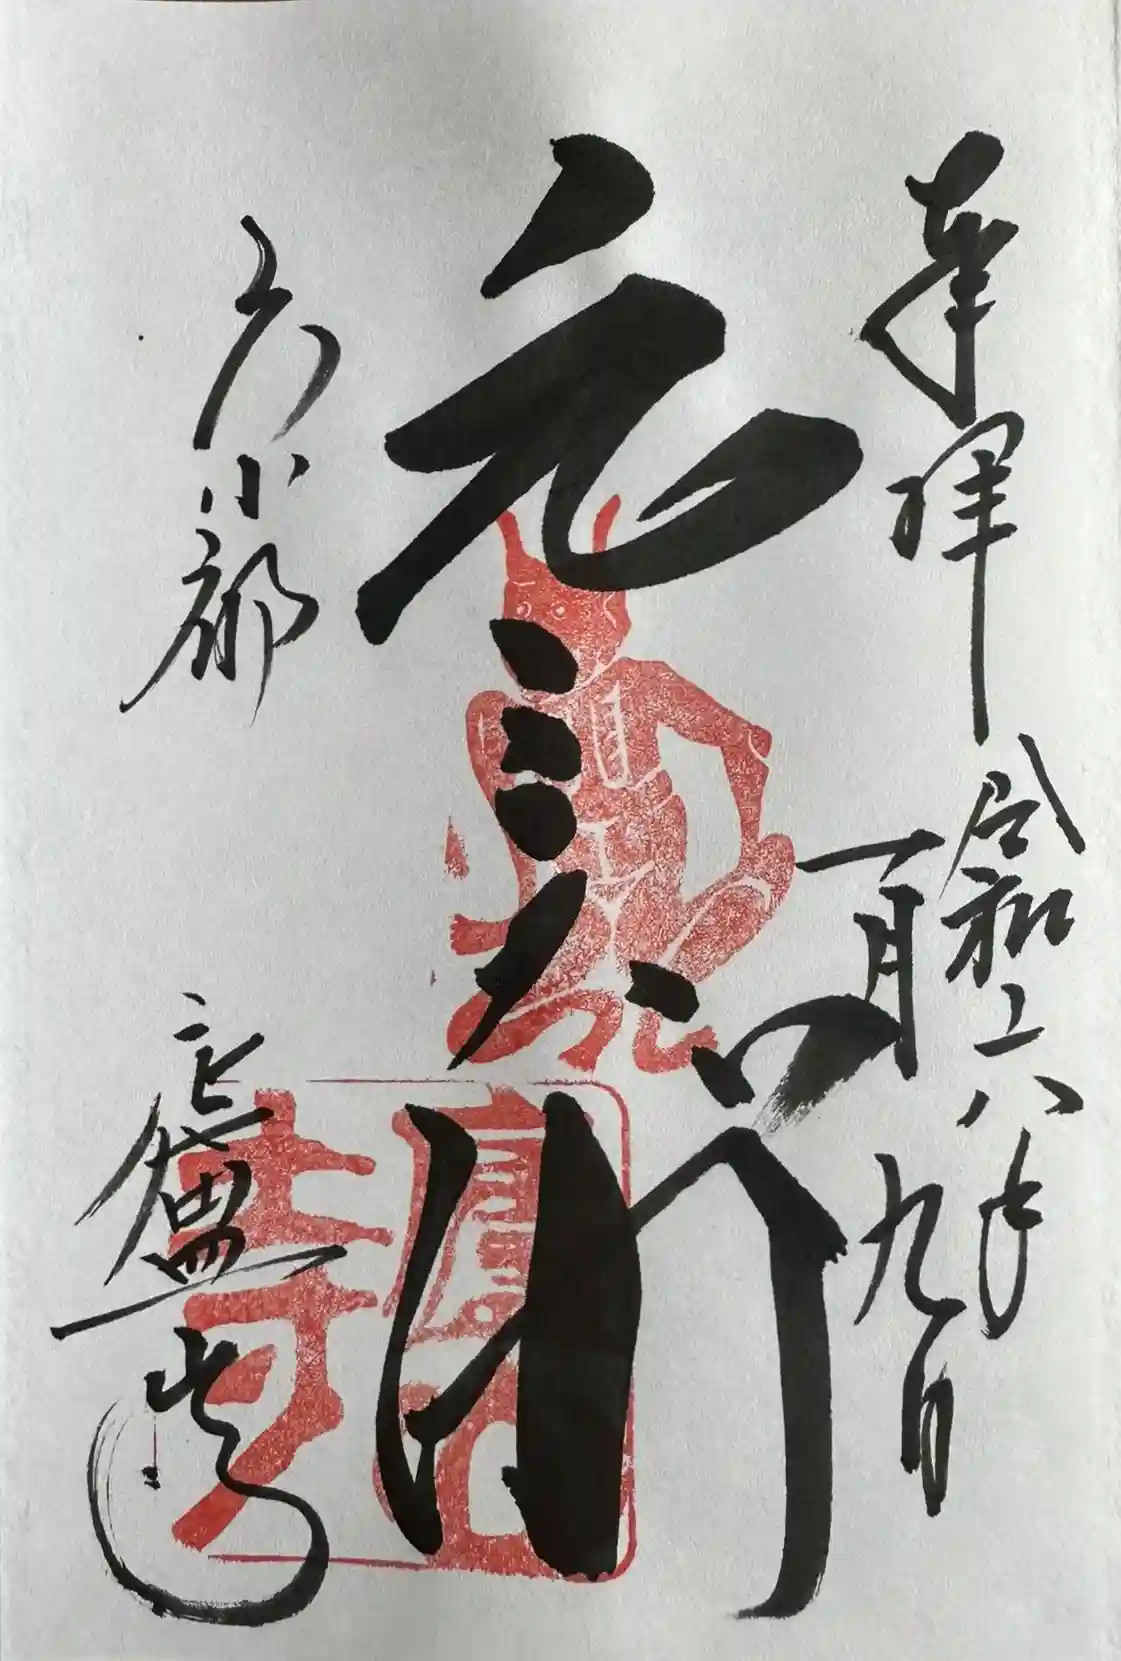 奉拝
令和六年
一月九日
元三大師
京都
廬山寺
廬山寺